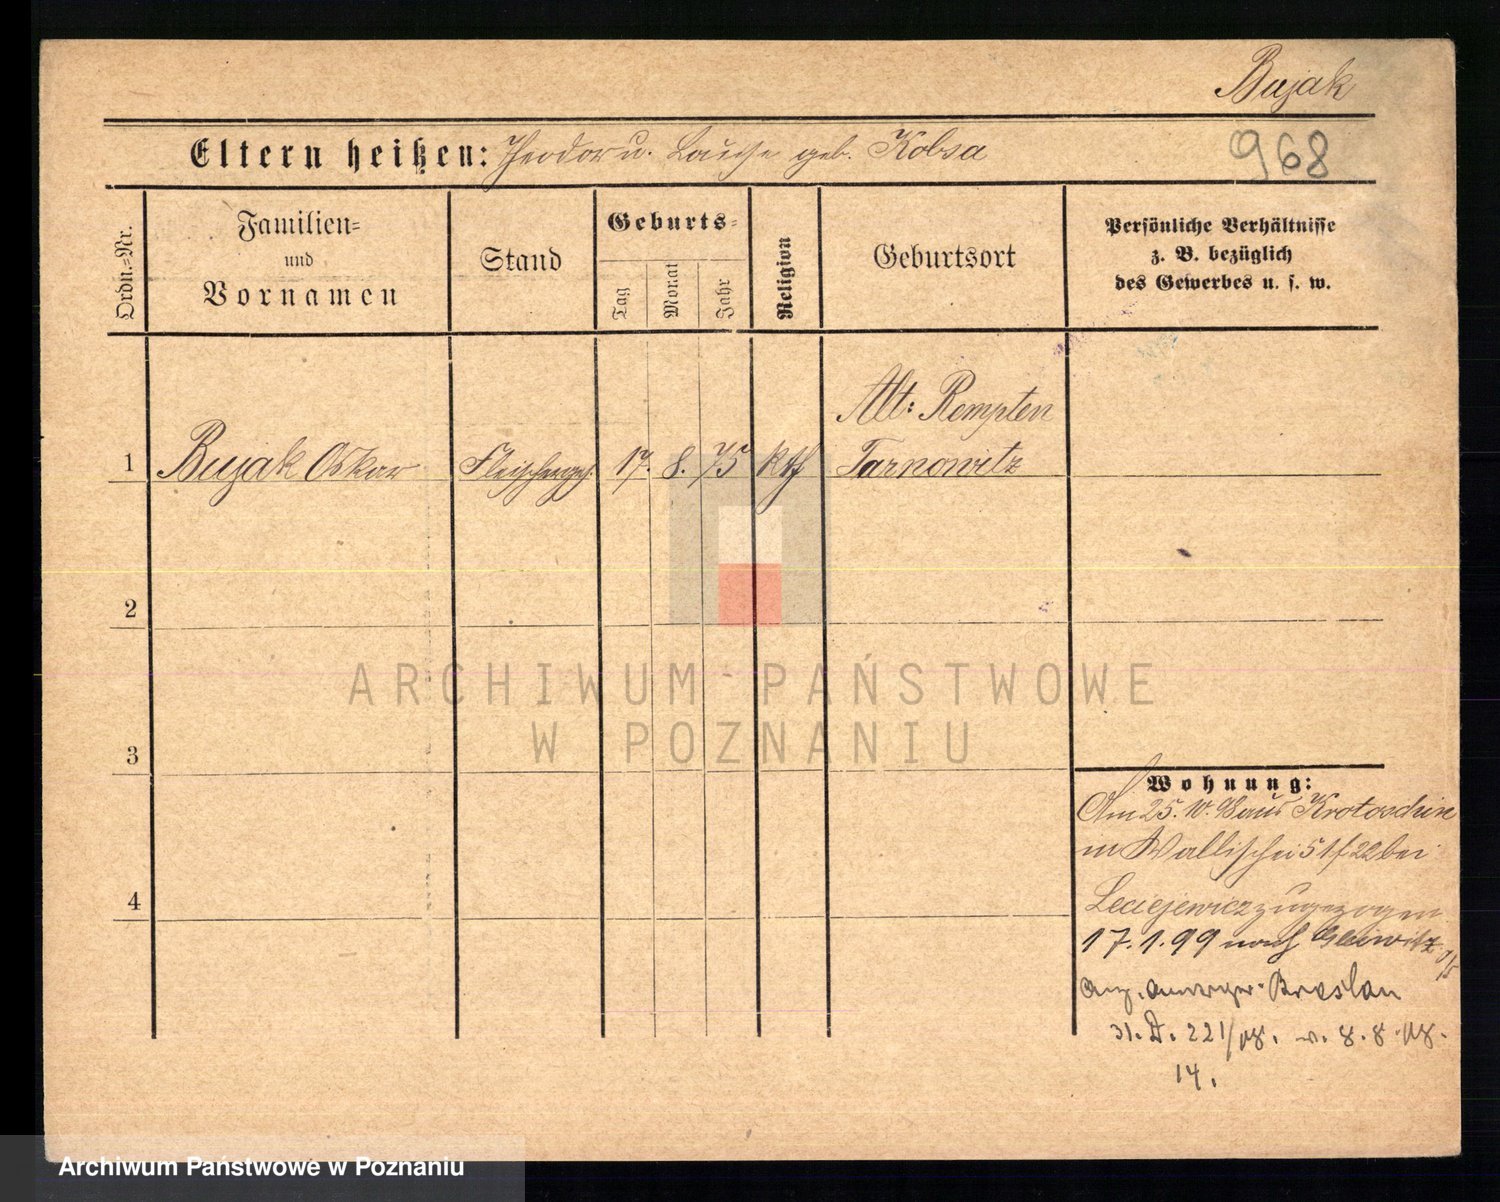 Bujak
Eltern heißen: Theodor u. Louise geb. Kobsa
968
Ordn.=Nr.
Familien=
und
Vornamen
Stand
Geburts=
Tag
Monat
Jahr
Religion
Geburtsort
Persönliche Verhältnisse
z. B. bezüglich
des Gewerbes u. s. w.
Alt:
1 Bujak Oskar Fleischerges. 17. 8. 75 kth Tarnowitz
2
3
4
ARCHIWUM PAŃSTWOWE
W POZNANIU
Wohnung:
Am 25. 10. 98 aus Krotoschin
in Wallischei 51/22 bei
Leciejewicz zugezogen
17. 1. 99 nach Gleiwitz O/S
Breslau
31. D. 221/08. v. 8. 8. 08.
14.
Archiwum Państwowe w Poznaniu